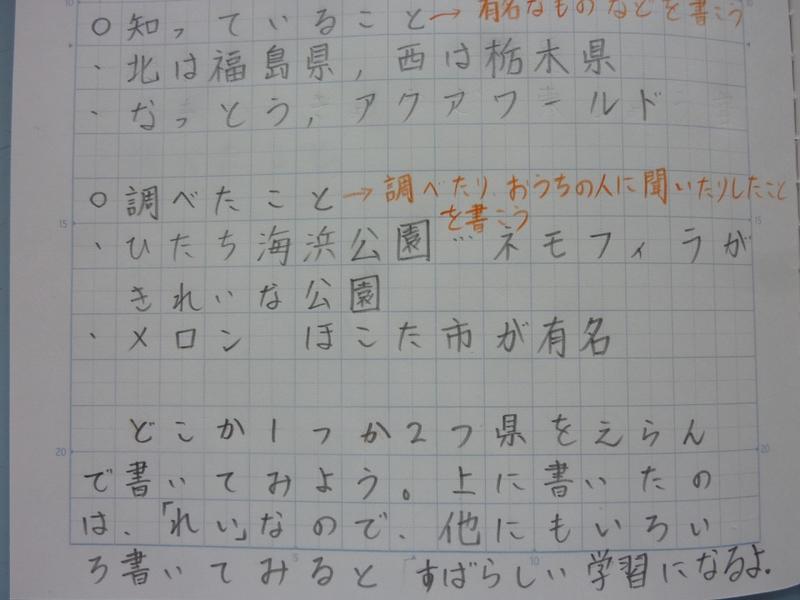 ○知っていること→有名なものなどを書こう
・北は福島県,西は栃木県
・なっとう,アクアワールド
○調べたこと→調べたり、おうちの人に聞いたりしたこと
を書こう
・ひたち海浜公園…ネモフィラが
きれいな公園
・メロン ほこた市が有名
どこか1つか2つ県をえらん
で書いてみよう。上に書いたの
は、「れい」なので、他にもいろい
ろ書いてみると すばらしい学習になるよ.